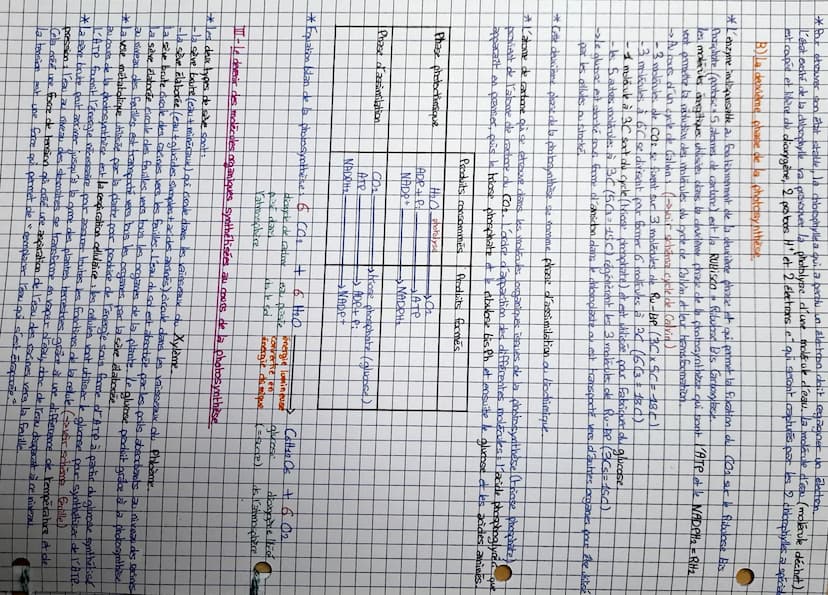 * Pour retrouver son état stable, la chlorophylle a qui a perdu un électron doit regagner un électron.
l'état excité de la chlorophylle va provoquer la photolyse d'une molécule d'eau. La molécule d'eau (molécule déchet)
est coupée et libère du dioxygène, 2 protons H⁺ et 2 électrons e⁻ qui seront capturés par les 2 chlorophylles a
B) La deuxième phase de la photosynthèse
* L'enzyme indispensable au fonctionnement de la deuxième phase et qui permet la fixation du CO₂ sur le Ribulose Bis
Phosphate (ribulose = 5 atomes de carbone) est la RuBisCo = Ribulose Bis Carboxylase.
les molécules énergétiques utilisées dans la deuxième phase de la photosynthèse qui sont l'ATP et le NADPH₂ = RH₂
vont permettre la réduction des molécules du cycle de Calvin et leur transformation.
→ Au cours d'un cycle de Calvin (→ voir schéma cycle de Calvin)
- 3 molécules de CO₂ se fixent sur 3 molécules de Ru-BP (3C x 5C = 18C)
- 3 molécules à 6C se divisent pour former 6 molécules à 3C (6C3 = 18C)
- 1 molécule à 3C sort du cycle (triose phosphate) et est utilisée pour fabriquer du glucose
- les 5 autres molécules à 3C (5C3 = 15C) régénèrent les 3 molécules de Ru-BP (3C5 = 15C)
→ le glucose est stocké sous forme d'amidon dans le chloroplaste ou est transporté vers d'autres organes pour être utilisé
par les cellules ou stocké.
* Cette deuxième phase de la photosynthèse se nomme phase d'assimilation ou biochimique.
* L'atome de carbone qui se retrouve dans les molécules organiques issues de la photosynthèse (triose phosphate)
provient de l'atome de carbone du CO₂. L'ordre d'apparition des différentes molécules: l'acide phosphoglycérique
apparaît en premier, puis le triose phosphate et le ribulose bis Ph et ensuite le glucose et les acides aminés.
Produits consommés Produits formés
Phase photochimique H₂O photolyse → O₂
ADP + Pi → ATP
NADP⁺ → NADPH₂
Phase d'assimilation CO₂ → triose phosphate (glucose)
ATP → ADP + Pi
NADPH₂ → NADP⁺
* Équation bilan de la photosynthèse: 6 CO₂ + 6 H₂O énergie lumineuse → C₆H₁₂O₆ + 6 O₂
dioxyde de carbone eau puisée convertie en glucose dioxygène libéré
puisé dans ds le sol énergie chimique (= sucre) ds l'atmosphère
l'atmosphère
III - Le devenir des molécules organiques synthétisées au cours de la photosynthèse
* Les deux types de sève sont:
- la sève brute (eau + minéraux) qui circule dans les vaisseaux du Xylème.
- la sève élaborée (eau + glucides simples + acides aminés) circule dans les vaisseaux du Phloème.
La sève brute circule des racines vers les feuilles. L'eau du sol est absorbée par les poils absorbants au niveau des racines
La sève élaborée circule des feuilles vers tous les organes de la plante. le glucose produit grâce à la photosynthèse
au niveau des feuilles est transporté vers tous les organes par la sève élaborée.
* La voie métabolique utilisée par la plante pour produire de l'énergie sous forme d'ATP à partir du glucose synthétisé
au cours de la photosynthèse est la respiration cellulaire: les cellules vont utiliser le glucose pour synthétiser de l'ATP
L'ATP fournit l'énergie nécessaire pour assurer toutes les fonctions de la cellule (→ voir schéma feuille)
* La sève brute peut arriver jusqu'à la cime des plantes terrestres grâce à une différence de température et de
pression: l'eau au niveau des stomates se transforme en vapeur d'eau, donc de l'eau disparaît à ce niveau.
Cela crée une force de tension qui crée une aspiration de l'eau des racines vers la feuille.
la tension est une force qui permet de "remplacer l'eau qui s'est évaporée"